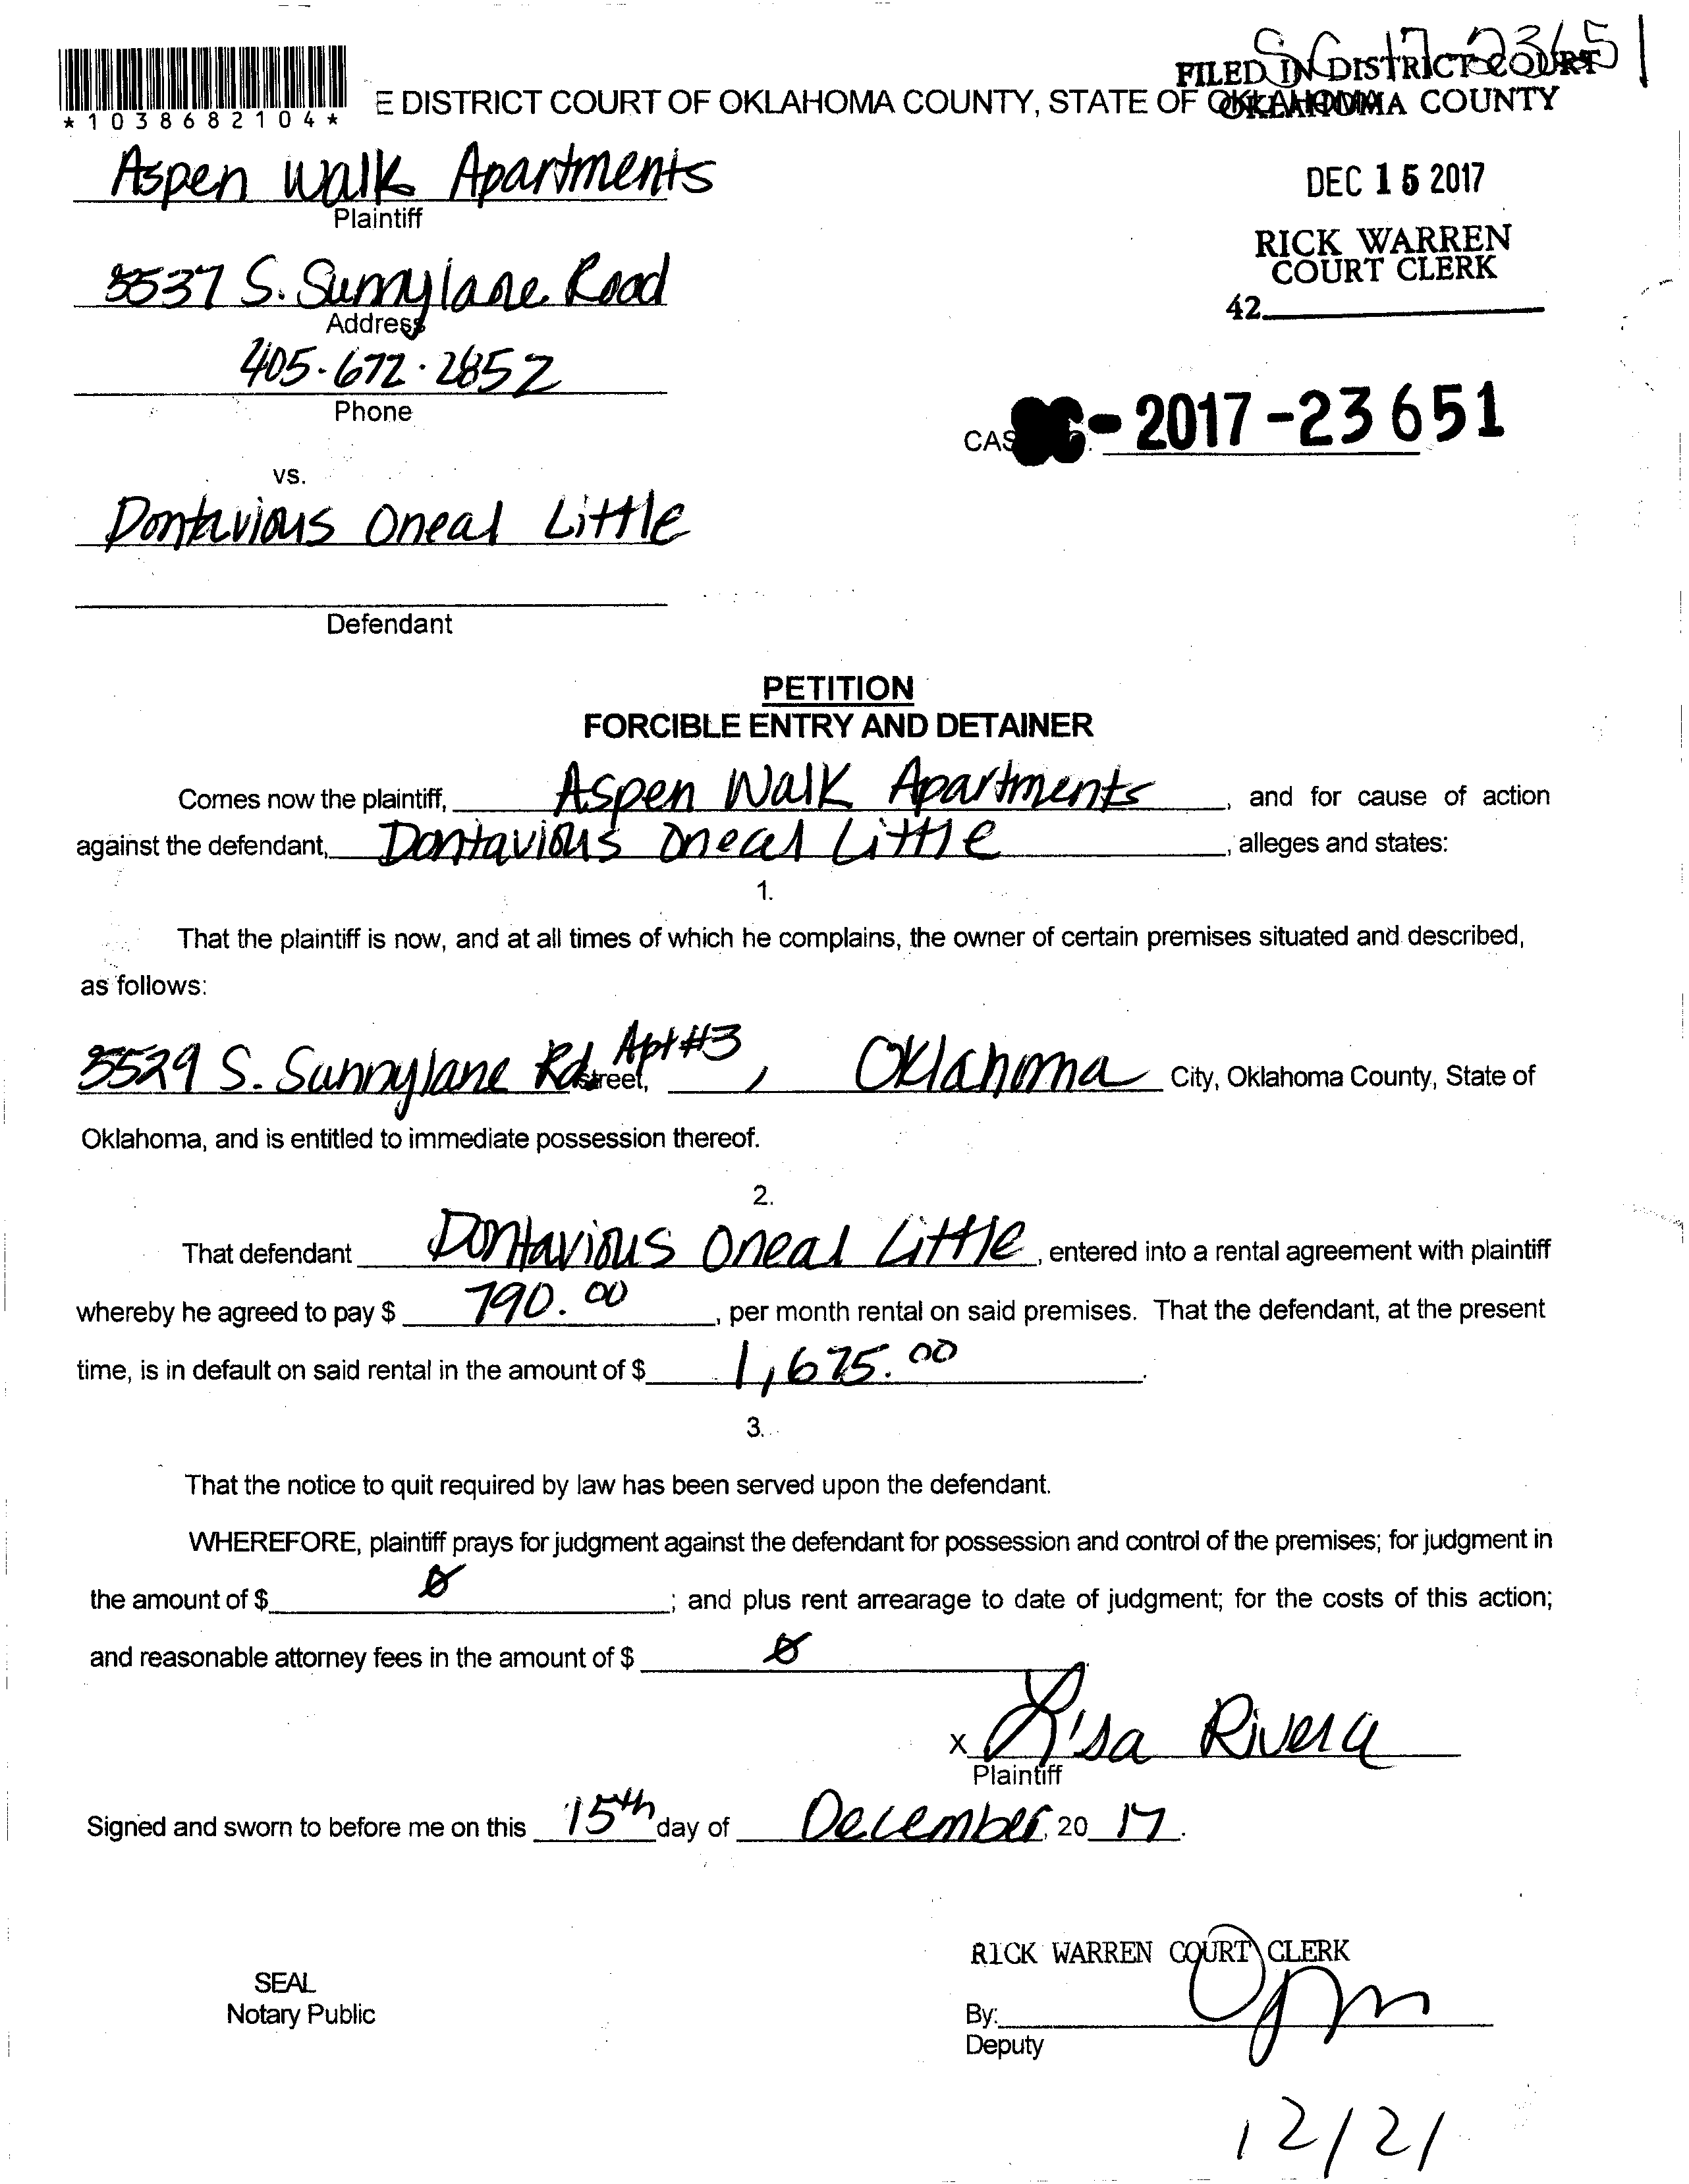 SC-17-23651
FILED IN DISTRICT COURT
*1038682104*
E DISTRICT COURT OF OKLAHOMA COUNTY, STATE OF OKLAHOMA
OKLAHOMA COUNTY
Aspen Walk Apartments
Plaintiff
DEC 15 2017
RICK WARREN
COURT CLERK
42
5537 S. Sunnylane Road
Address
405-672-2852
Phone
CAS - 2017-23651
vs.
Dontavious Oneal Little
Defendant
PETITION
FORCIBLE ENTRY AND DETAINER
Comes now the plaintiff, Aspen Walk Apartments, and for cause of action
against the defendant, Dontavious Oneal Little, alleges and states:
1.
That the plaintiff is now, and at all times of which he complains, the owner of certain premises situated and described,
as follows:
5529 S. Sunnylane Rd Street, Apt #3, Oklahoma City, Oklahoma County, State of
Oklahoma, and is entitled to immediate possession thereof.
2.
That defendant Dontavious Oneal Little, entered into a rental agreement with plaintiff
whereby he agreed to pay $ 790.00, per month rental on said premises. That the defendant, at the present
time, is in default on said rental in the amount of $ 1,675.00.
3.
That the notice to quit required by law has been served upon the defendant.
WHEREFORE, plaintiff prays for judgment against the defendant for possession and control of the premises; for judgment in
the amount of $ Ø; and plus rent arrearage to date of judgment; for the costs of this action;
and reasonable attorney fees in the amount of $ Ø
X Lisa Rivera
Plaintiff
Signed and sworn to before me on this 15th day of December, 20 17.
RICK WARREN COURT CLERK
SEAL
Notary Public
By:
Deputy
12/21